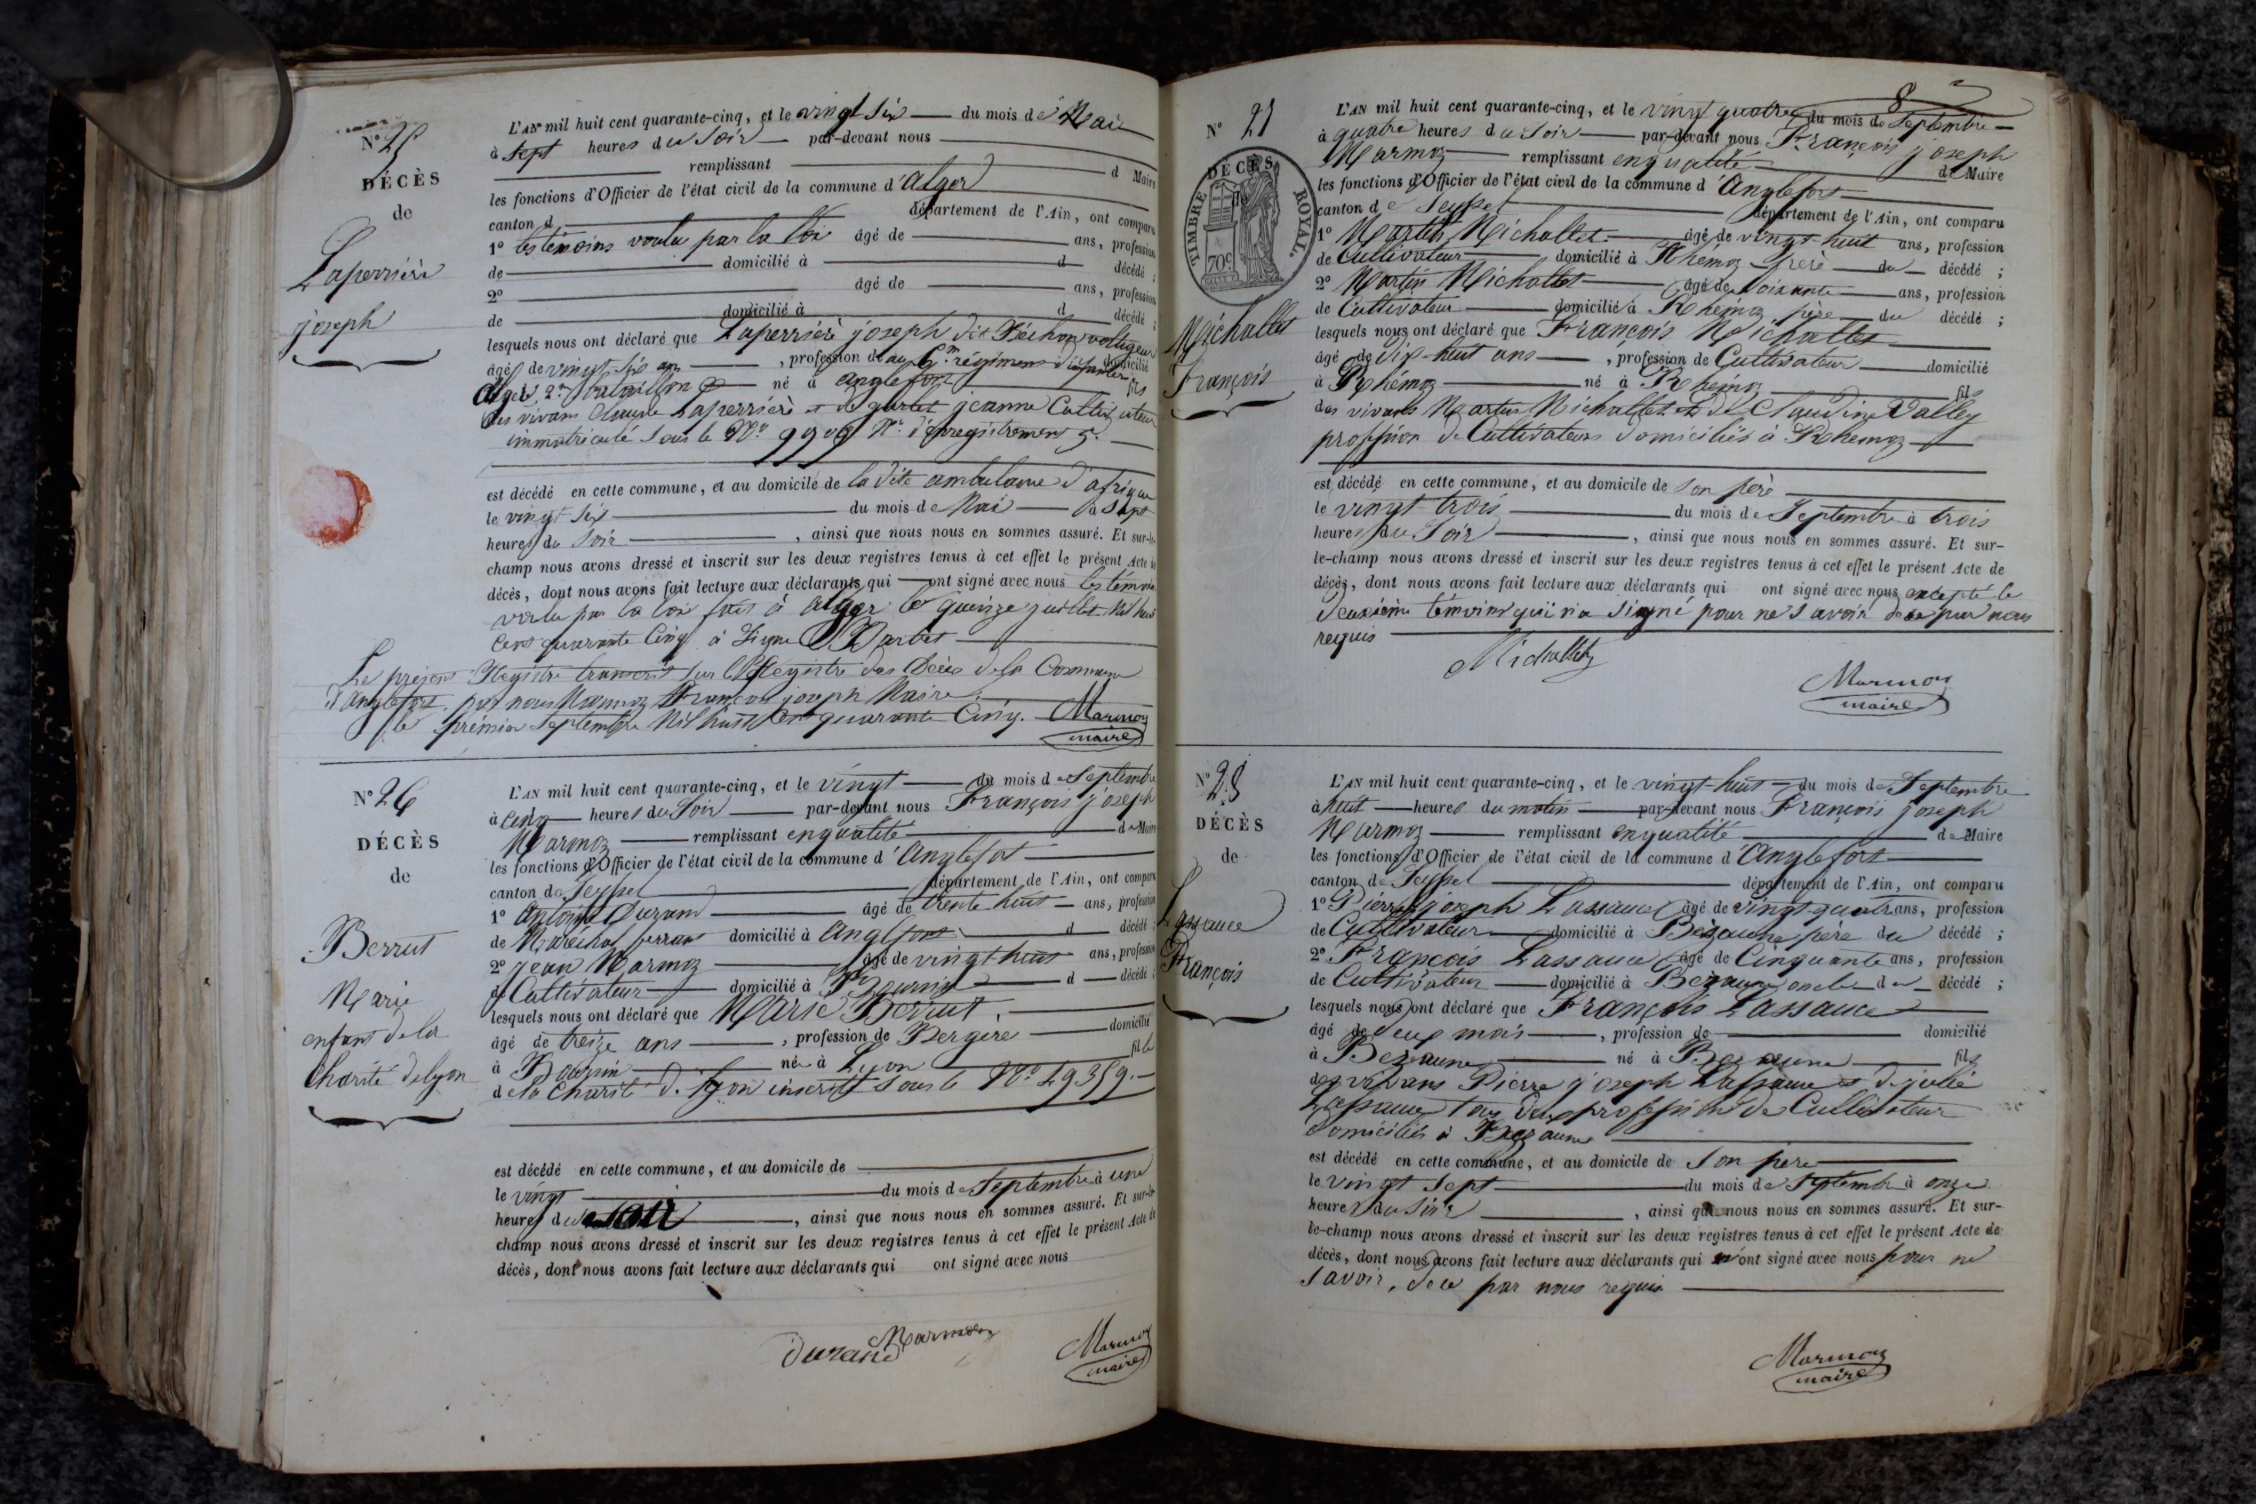 N° 25
DÉCÈS
de
Laperrière
joseph
L'AN mil huit cent quarante-cinq, et le vingt six du mois de Mai
à sept heures du Soir par-devant nous
remplissant d Maire
les fonctions d'Officier de l'état civil de la commune d'Alger
canton d département de l'Ain, ont comparu
1° les témoins voulu par la loi âgé de ans, profession
de domicilié à d décédé ;
2° âgé de ans, profession
de domicilié à d décédé ;
lesquels nous ont déclaré que Laperrière joseph dit voltigeur
âgé de vingt six ans , profession de au 6.m régiment domicilié
2.me Bataillon né à anglefort fils
des vivans Claude Laperrière et de jeanne Cultivateur
immatriculé sous le N° 9906 N° d'enregistrement 5.
est décédé en cette commune, et au domicile de la dite ambulance d'afrique
le vingt six du mois de Mai à sept
heures du Soir , ainsi que nous nous en sommes assuré. Et sur-le-
champ nous avons dressé et inscrit sur les deux registres tenus à cet effet le présent Acte de
décès, dont nous avons fait lecture aux déclarants qui ont signé avec nous les témoins
voulu par la loi fait à alger le quinze juillet Mil huit
Cent quarante Cinq à Signé Barbet
Le présent Registre transcrit sur le Registre des Décès de la Commune
d'anglefort par nous Marmoz François joseph Maire
le prémier Septembre Mil huit Cent quarante Cinq. Marmoz
maire
N° 26
DÉCÈS
de
Berrut
Marie
enfant de la
Charité de lyon
L'AN mil huit cent quarante-cinq, et le vingt du mois de Septembre
à Cinq heures du Soir par-devant nous François joseph
Marmoz remplissant en qualité de Maire
les fonctions d'Officier de l'état civil de la commune d'Anglefort
canton de Seyssel département de l'Ain, ont comparu
1° Antoine Durand âgé de trente huit ans, profession
de Maréchal ferrant domicilié à Anglefort d décédé
2° jean Marmoz âgé de vingt huit ans, profession
de Cultivateur domicilié à d décédé ;
lesquels nous ont déclaré que Marie Berrut,
âgé de treize ans , profession de Bergere domicilié
à née à Lyon fille
de la Charité de lyon inscrite sous le N° 49359.
est décédé en cette commune, et au domicile de
le vingt du mois de Septembre à une
heures du soir , ainsi que nous nous en sommes assuré. Et sur-le-
champ nous avons dressé et inscrit sur les deux registres tenus à cet effet le présent Acte de
décès, dont nous avons fait lecture aux déclarants qui ont signé avec nous
durand Marmoz Marmoz
maire
8
N° 27
DÉCÈS
de
TIMBRE ROYAL.
70c
Michallet
François
L'AN mil huit cent quarante-cinq, et le vingt quatre du mois de Septembre
à quatre heures du Soir par-devant nous François joseph
Marmoz remplissant en qualité de Maire
les fonctions d'Officier de l'état civil de la commune d'Anglefort
canton de Seyssel département de l'Ain, ont comparu
1° Martin Michallet âgé de vingt-huit ans, profession
de Cultivateur domicilié à Rhémoz frère du décédé ;
2° Martin Michallet âgé de Soixante ans, profession
de Cultivateur domicilié à Rhémoz père du décédé ;
lesquels nous ont déclaré que François Michallet
âgé de dix-huit ans , profession de Cultivateur domicilié
à Rhémoz né à Rhémoz fils
des vivants Martin Michallet et de Claudine Valley
proffision de Cultivateurs domiciliés à Rhemoz
est décédé en cette commune, et au domicile de son père
le vingt trois du mois de Septembre à trois
heures du Soir , ainsi que nous nous en sommes assuré. Et sur-
le-champ nous avons dressé et inscrit sur les deux registres tenus à cet effet le présent Acte de
décès, dont nous avons fait lecture aux déclarants qui ont signé avec nous excepté le
deuxième témoins qui n'a signé pour ne savoir de ce par nous
requis
Michallet Marmoz
maire
N° 28
DÉCÈS
de
Lassauce
François
L'AN mil huit cent quarante-cinq, et le vingt-huit du mois de Septembre
à huit heures du matin par-devant nous François joseph
Marmoz remplissant en qualité de Maire
les fonctions d'Officier de l'état civil de la commune d'Anglefort
canton de Seyssel département de l'Ain, ont comparu
1° Pierre joseph Lassauce âgé de vingt-quatre ans, profession
de Cultivateur domicilié à Bezaune père du décédé ;
2° François Lassauce âgé de Cinquante ans, profession
de Cultivateur domicilié à Bezaune oncle du décédé ;
lesquels nous ont déclaré que François Lassauce
âgé de deux mois , profession de domicilié
à Bezaune né à Bezaune fils
des vivans Pierre joseph Lassauce et de julie
Lassauce tous deux proffision de Cultivateur
domiciliés à Bezaune
est décédé en cette commune, et au domicile de son père
le vingt sept du mois de Septembre à onze
heures du Soir , ainsi que nous nous en sommes assuré. Et sur-
le-champ nous avons dressé et inscrit sur les deux registres tenus à cet effet le présent Acte de
décès, dont nous avons fait lecture aux déclarants qui n'ont signé avec nous pour ne
savoir, de ce par nous requis
Marmoz
maire